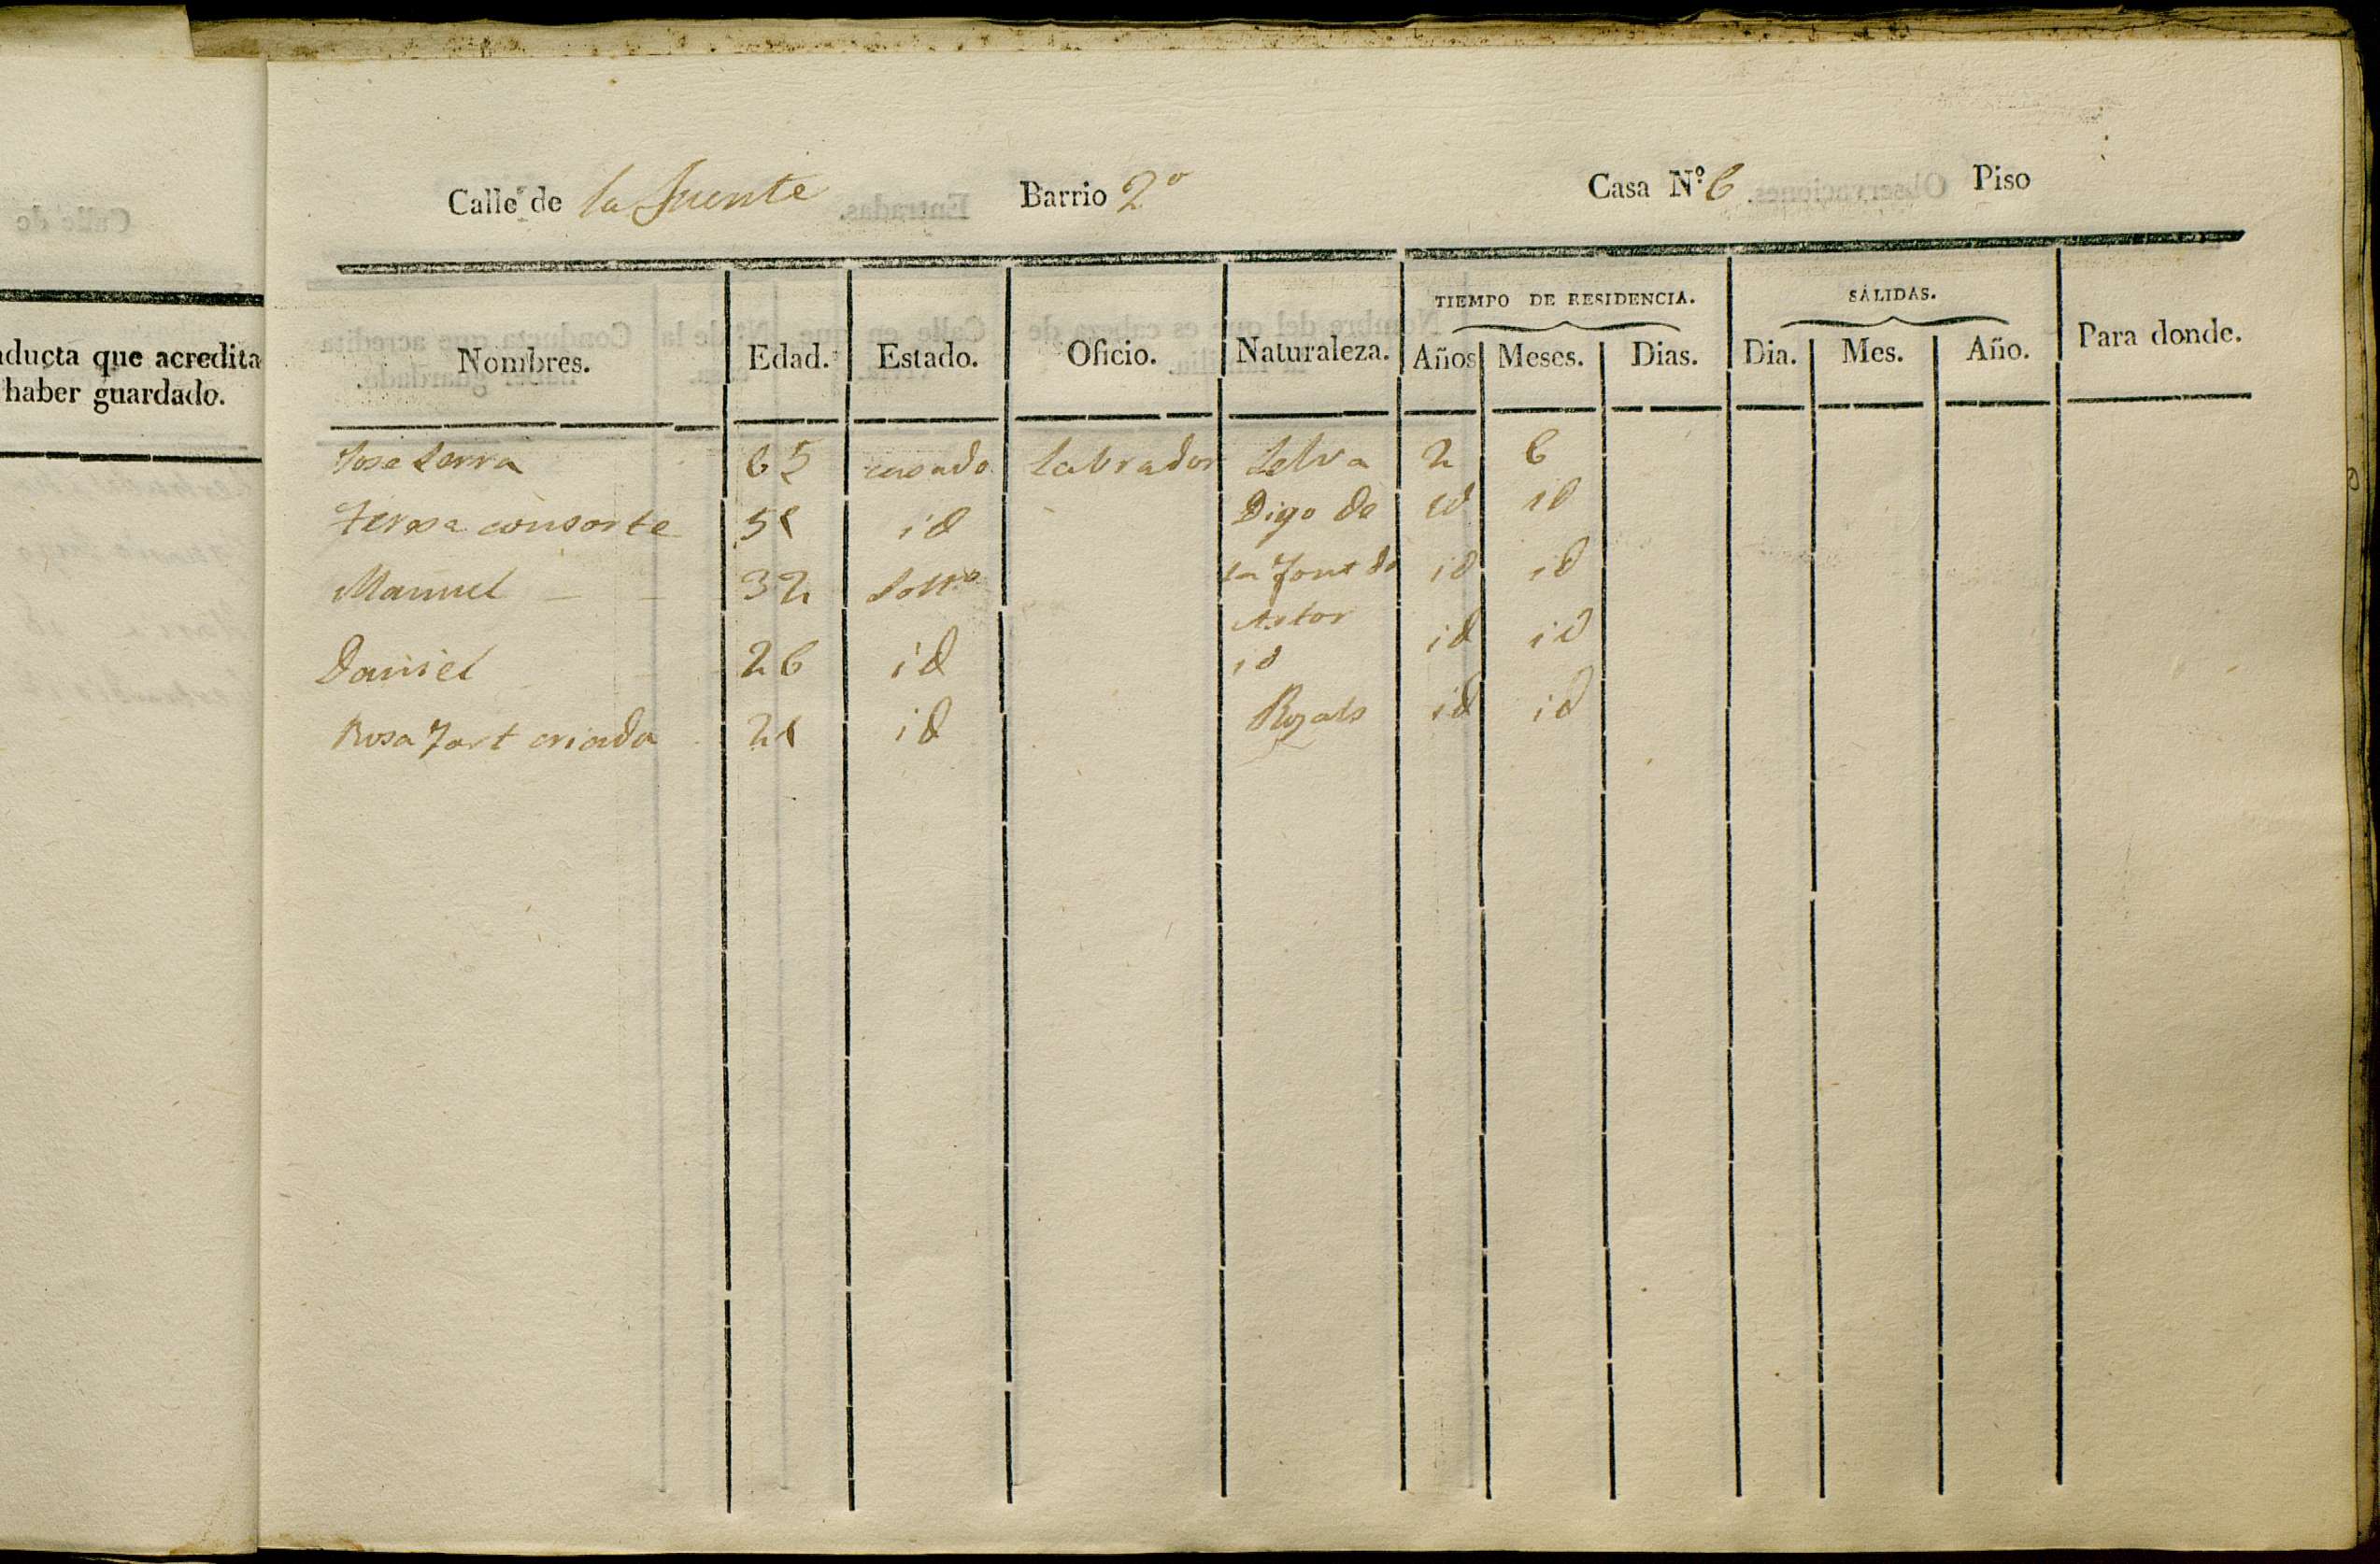 Calle de la fuente Barrio 2º Casa Nº 6 Piso
TIEMPO DE RESIDENCIA. SALIDAS.
Nombres. Edad. Estado. Oficio. Naturaleza. Años Meses. Dias. Dia. Mes. Año. Para donde.
Jose Serra 65 casado Labrador Selva 2 6
Teresa consorte 51 id Digo de id id
Manuel 32 Soltº la Font de id id
Astor
Daniel 26 id id id id
Rosa Fort criada 21 id id id
nducta que acredita
haber guardado.